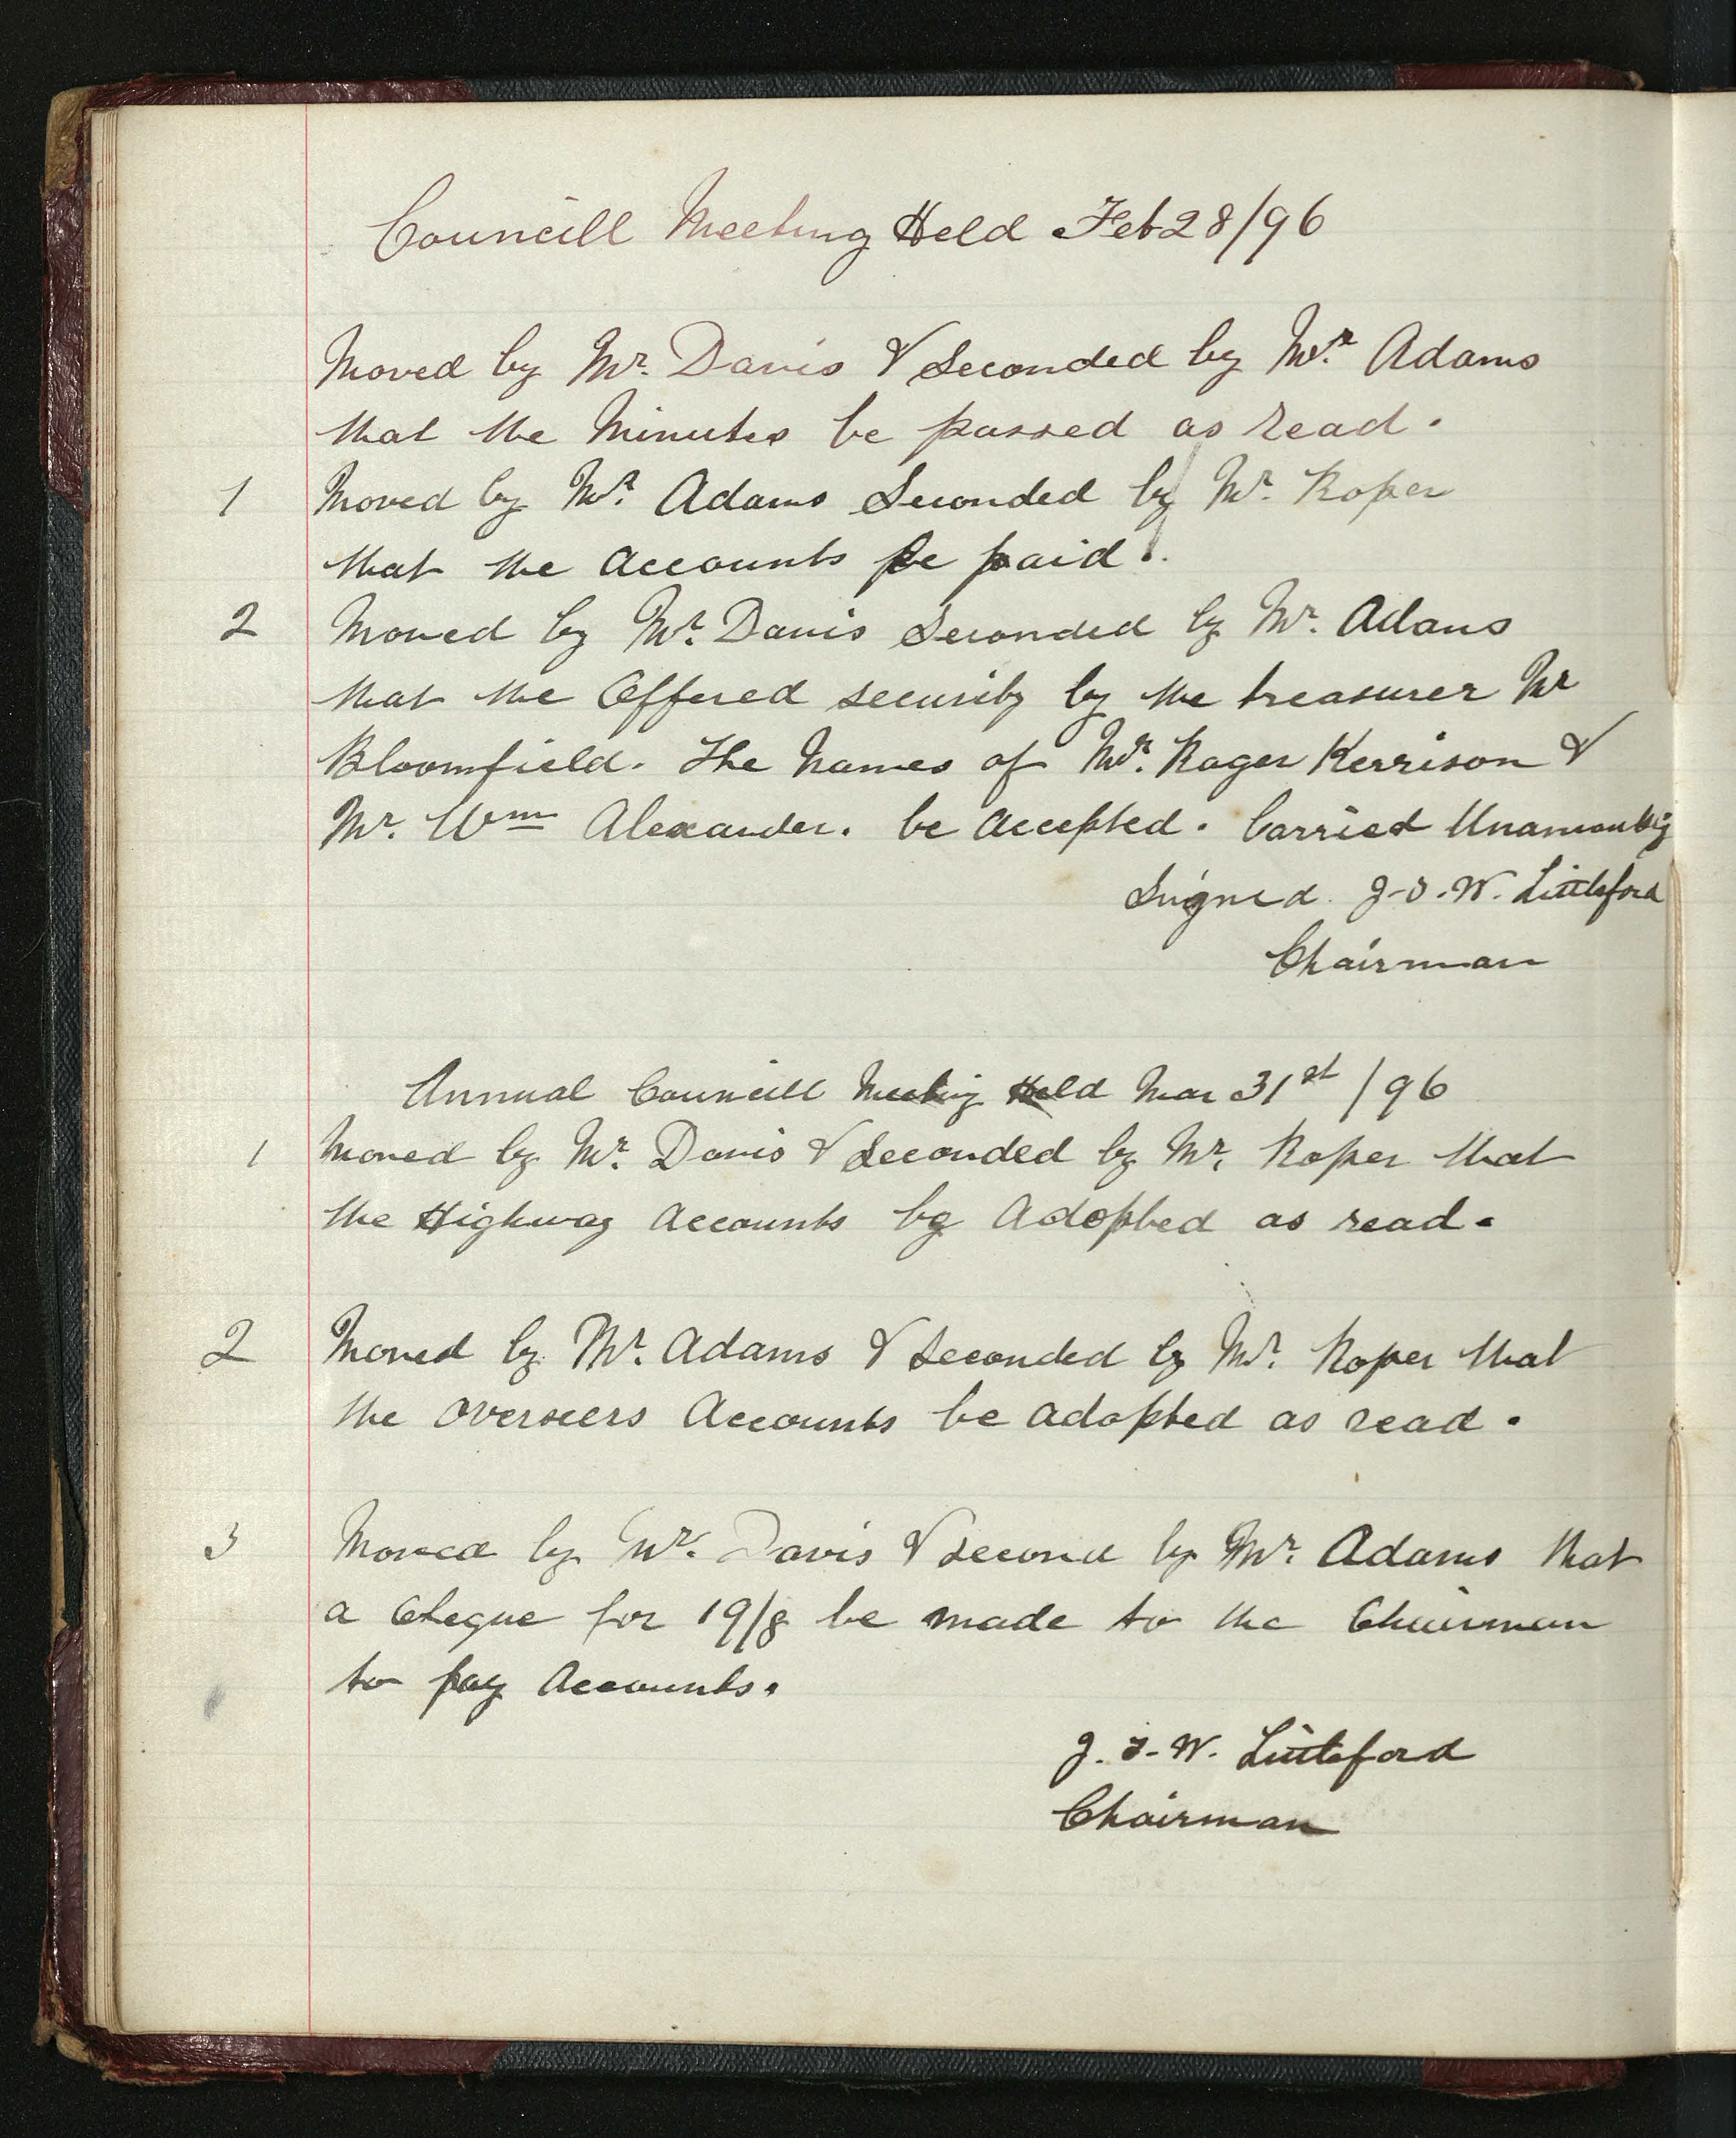 Councill Meeting Held Feb 28/96
Moved by Mr. Davis & Seconded by Mr. Adams
that the Minutes be passed as read.
1 Moved by Mr. Adams Seconded by Mr. Roper
that the Accounts be paid.
2 Moved by Mr. Davis Seconded by Mr. Adams
that the Offered security by the treasurer Mr
Bloomfield. The Names of Mr. Roger Kerrison &
Mr. Wm Alexander. be Accepted. Carried
Signed J. W. Littleford
Chairman
Annual Councill Meeting Held Mar 31st /96
1 Moved by Mr. Davis & Seconded by Mr. Roper that
the Highway Accounts be Adopted as read.
2 Moved by Mr. Adams & Seconded by Mr. Roper that
the Overseers Accounts be adopted as read.
3 Moved by Mr. Davis & Second by Mr. Adams that
a Cheque for 19/8 be made to the Chairman
to pay Accounts.
J. W. Littleford
Chairman